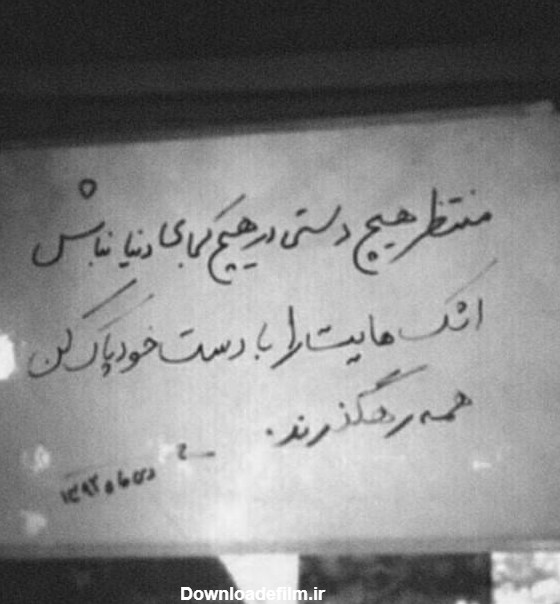 منتظر هیچ دستی در هیچ کجای دنیا نباش
اشک هایت را با دست خود پاک کن
همه رهگذرند.
دی ماه ۱۳۹۲
Downloadefilm.ir